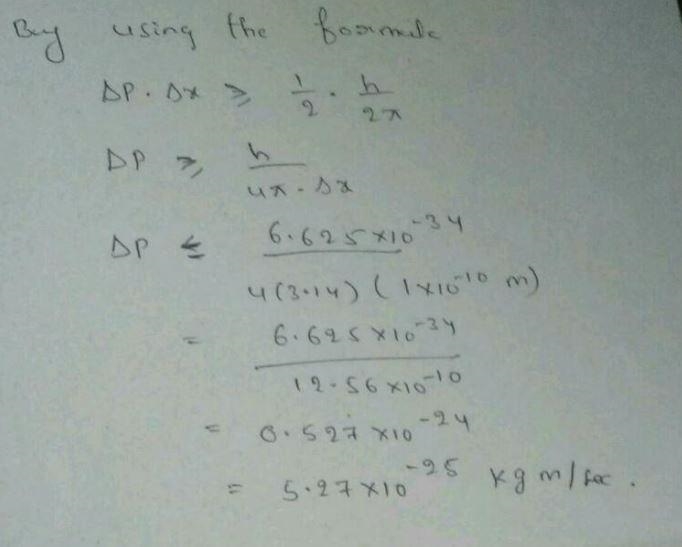 By using the formula
ΔP . Δx ≥ 1/2 . h/2π
ΔP ≥ h/4π . Δx
ΔP ≤ 6.625×10^-34 / 4(3.14) (1×10^-10 m)
= 6.625×10^-34 / 12.56×10^-10
= 0.527×10^-24
= 5.27×10^-25 kg m/sec .